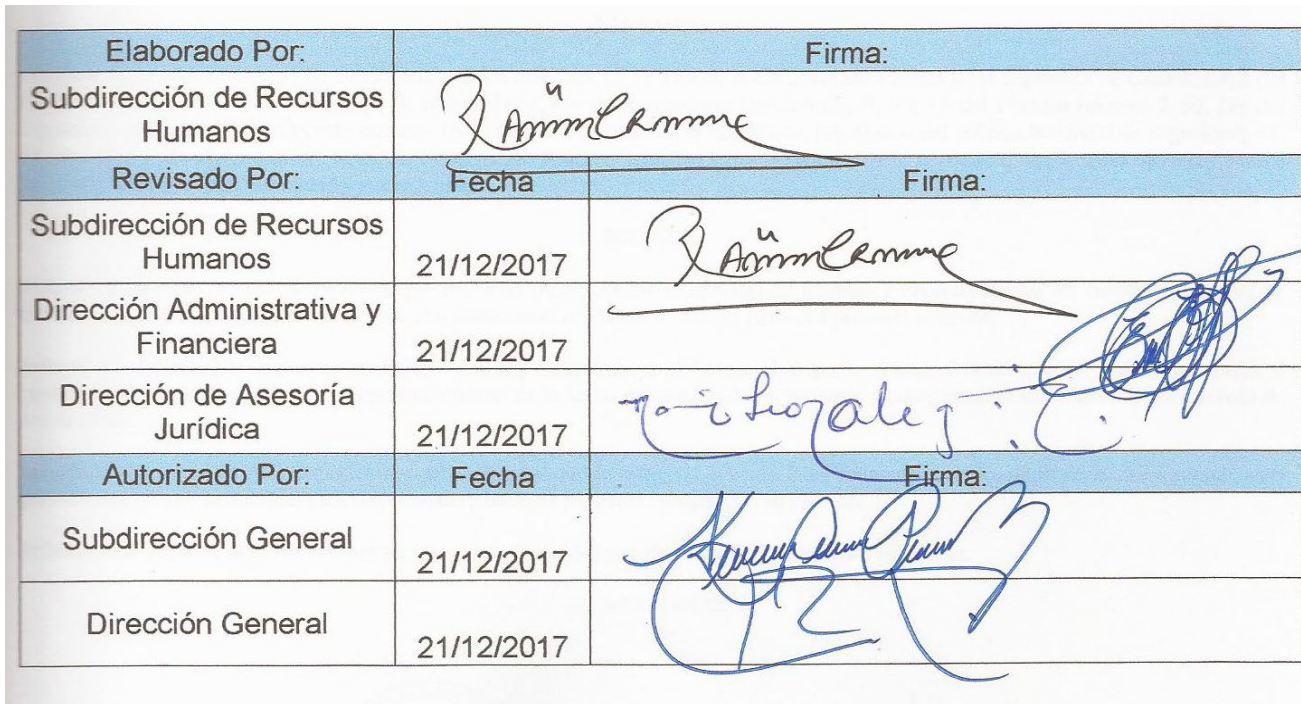 Elaborado Por: Firma:
Subdirección de Recursos
Humanos
Revisado Por: Fecha Firma:
Subdirección de Recursos
Humanos 21/12/2017
Dirección Administrativa y
Financiera 21/12/2017
Dirección de Asesoría
Jurídica 21/12/2017
Autorizado Por: Fecha Firma:
Subdirección General 21/12/2017
Dirección General 21/12/2017